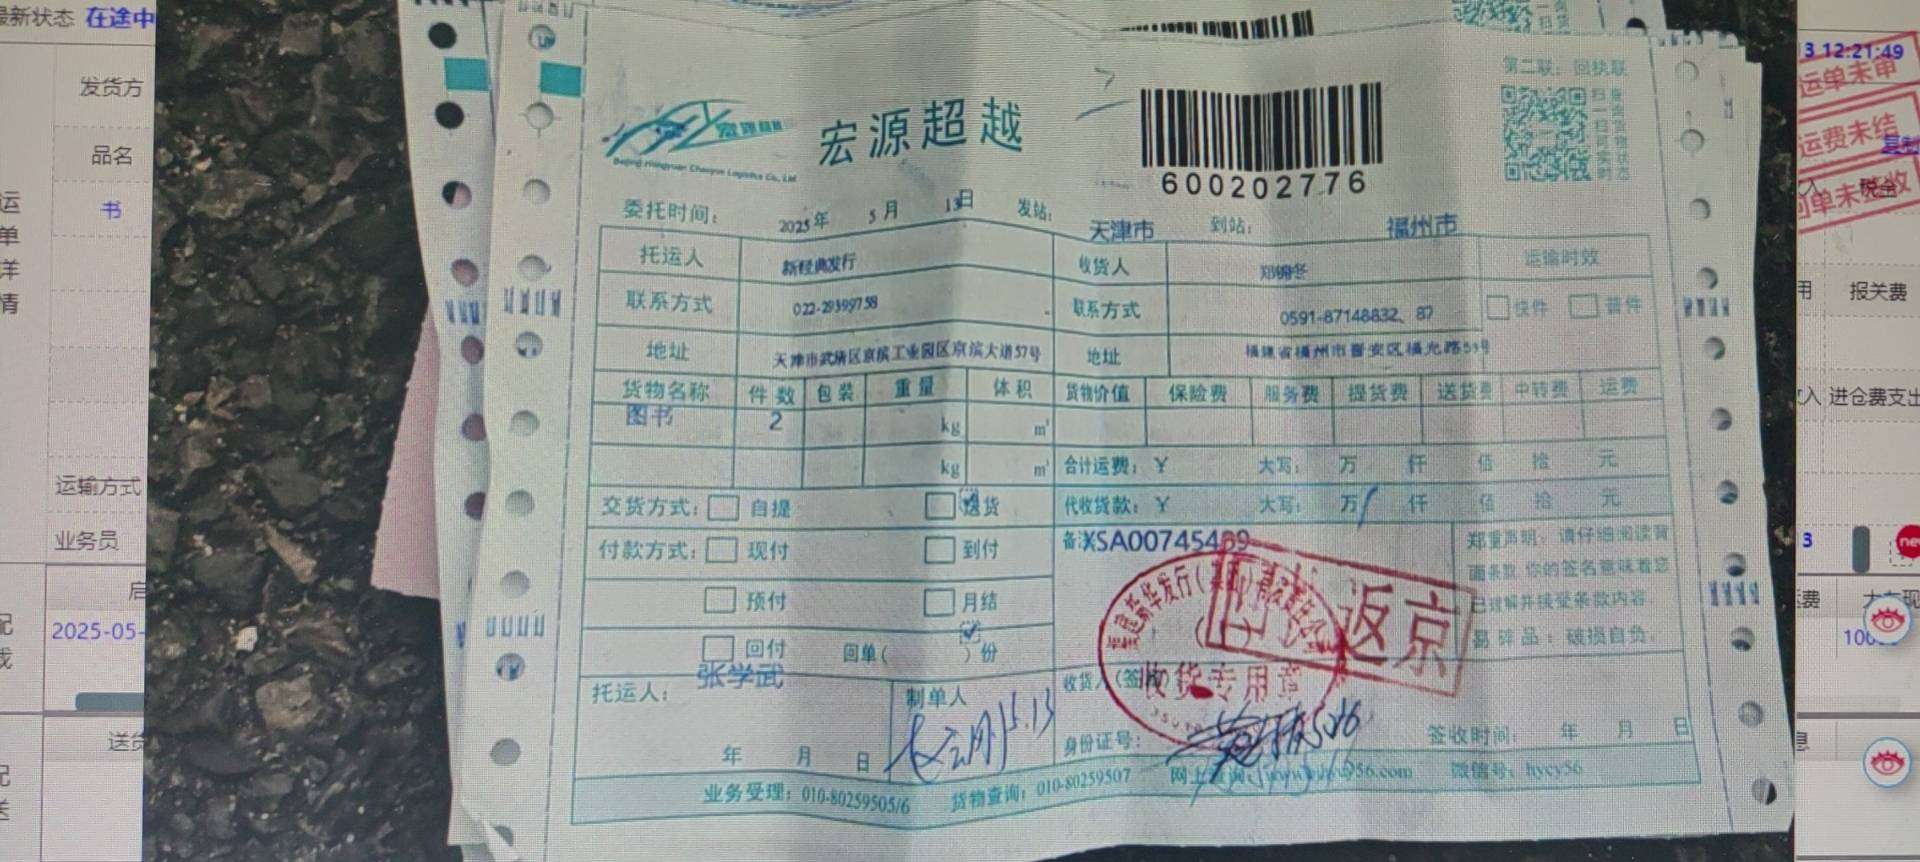 最新状态 在途中
发货方
品名
书
运单详情
运输方式
业务员
2025-05-
3 12:21:49
运单未审
运费未结
复制
税金
回单未签收
报关费
进仓费支出
第二联:回执联
宏源超越
Beijing Hongyuan Chaoyue Logistics Co., Ltd
600202776
委托时间: 2025年 5月 13日 发站: 天津市 到站: 福州市
托运人 新经典发行 收货人 运输时效
联系方式 022-29399758 联系方式 0591-87148832、87 快件 普件
地址 天津市武清区京滨工业园区京滨大道57号 地址 福建省福州市晋安区福光路59号
货物名称 件数 包装 重量 体积 货物价值 保险费 服务费 提货费 送货费 中转费 运费
图书 2 kg m³
kg m³ 合计运费:¥ 大写: 万 仟 佰 拾 元
交货方式: 自提 送货 代收货款:¥ 大写: 万 仟 佰 拾 元
付款方式: 现付 到付 备注 XSA00745469
预付 月结
回付 回单( )份
郑重声明:请仔细阅读背
面条款,你的签名意味着您
已理解并接受条款内容
易碎品:破损自负。
返京
收货专用章
托运人: 张学武 制单人 收货人(签收)
5.13
年 月 日 身份证号: 签收时间: 年 月 日
业务受理:010-80259505/6 货物查询:010-80259507 微信号:hycy56